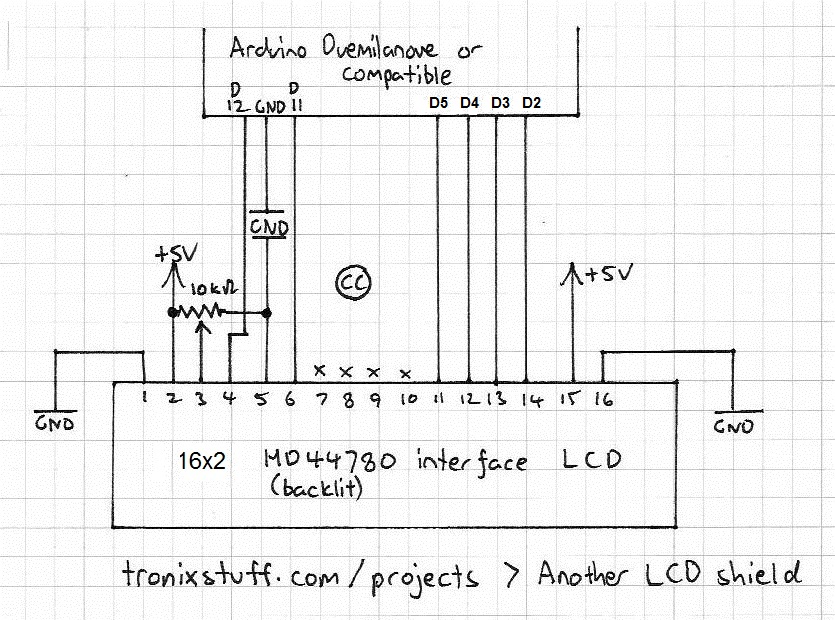 Arduino Duemilanove or
compatible
D D
12 GND 11 D5 D4 D3 D2
GND
+5V
10kΩ
CC
+5V
x x x x
1 2 3 4 5 6 7 8 9 10 11 12 13 14 15 16
GND GND
16x2 HD44780 interface LCD
(backlit)
tronixstuff.com/projects > Another LCD shield